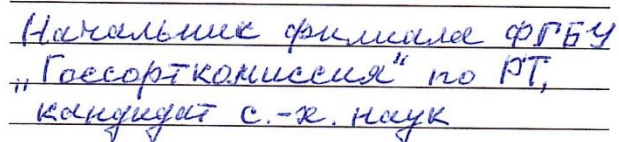 Начальник филиала ФГБУ
„Госсорткомиссия“ по РТ,
кандидат с.-х. наук